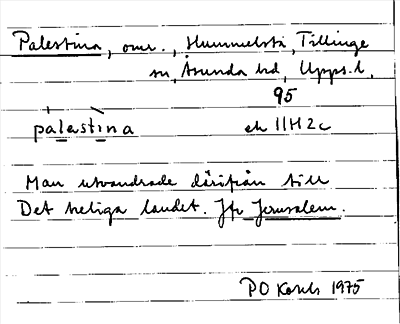 Palestina, omr., Hummelsta, Tillinge
sn, Åsunda hd, Upps. l.
95
pàlastìna ek 11H2c
Man utvandrade därifrån till
Det heliga landet. Jfr Jerusalem.
PO Karls 1975